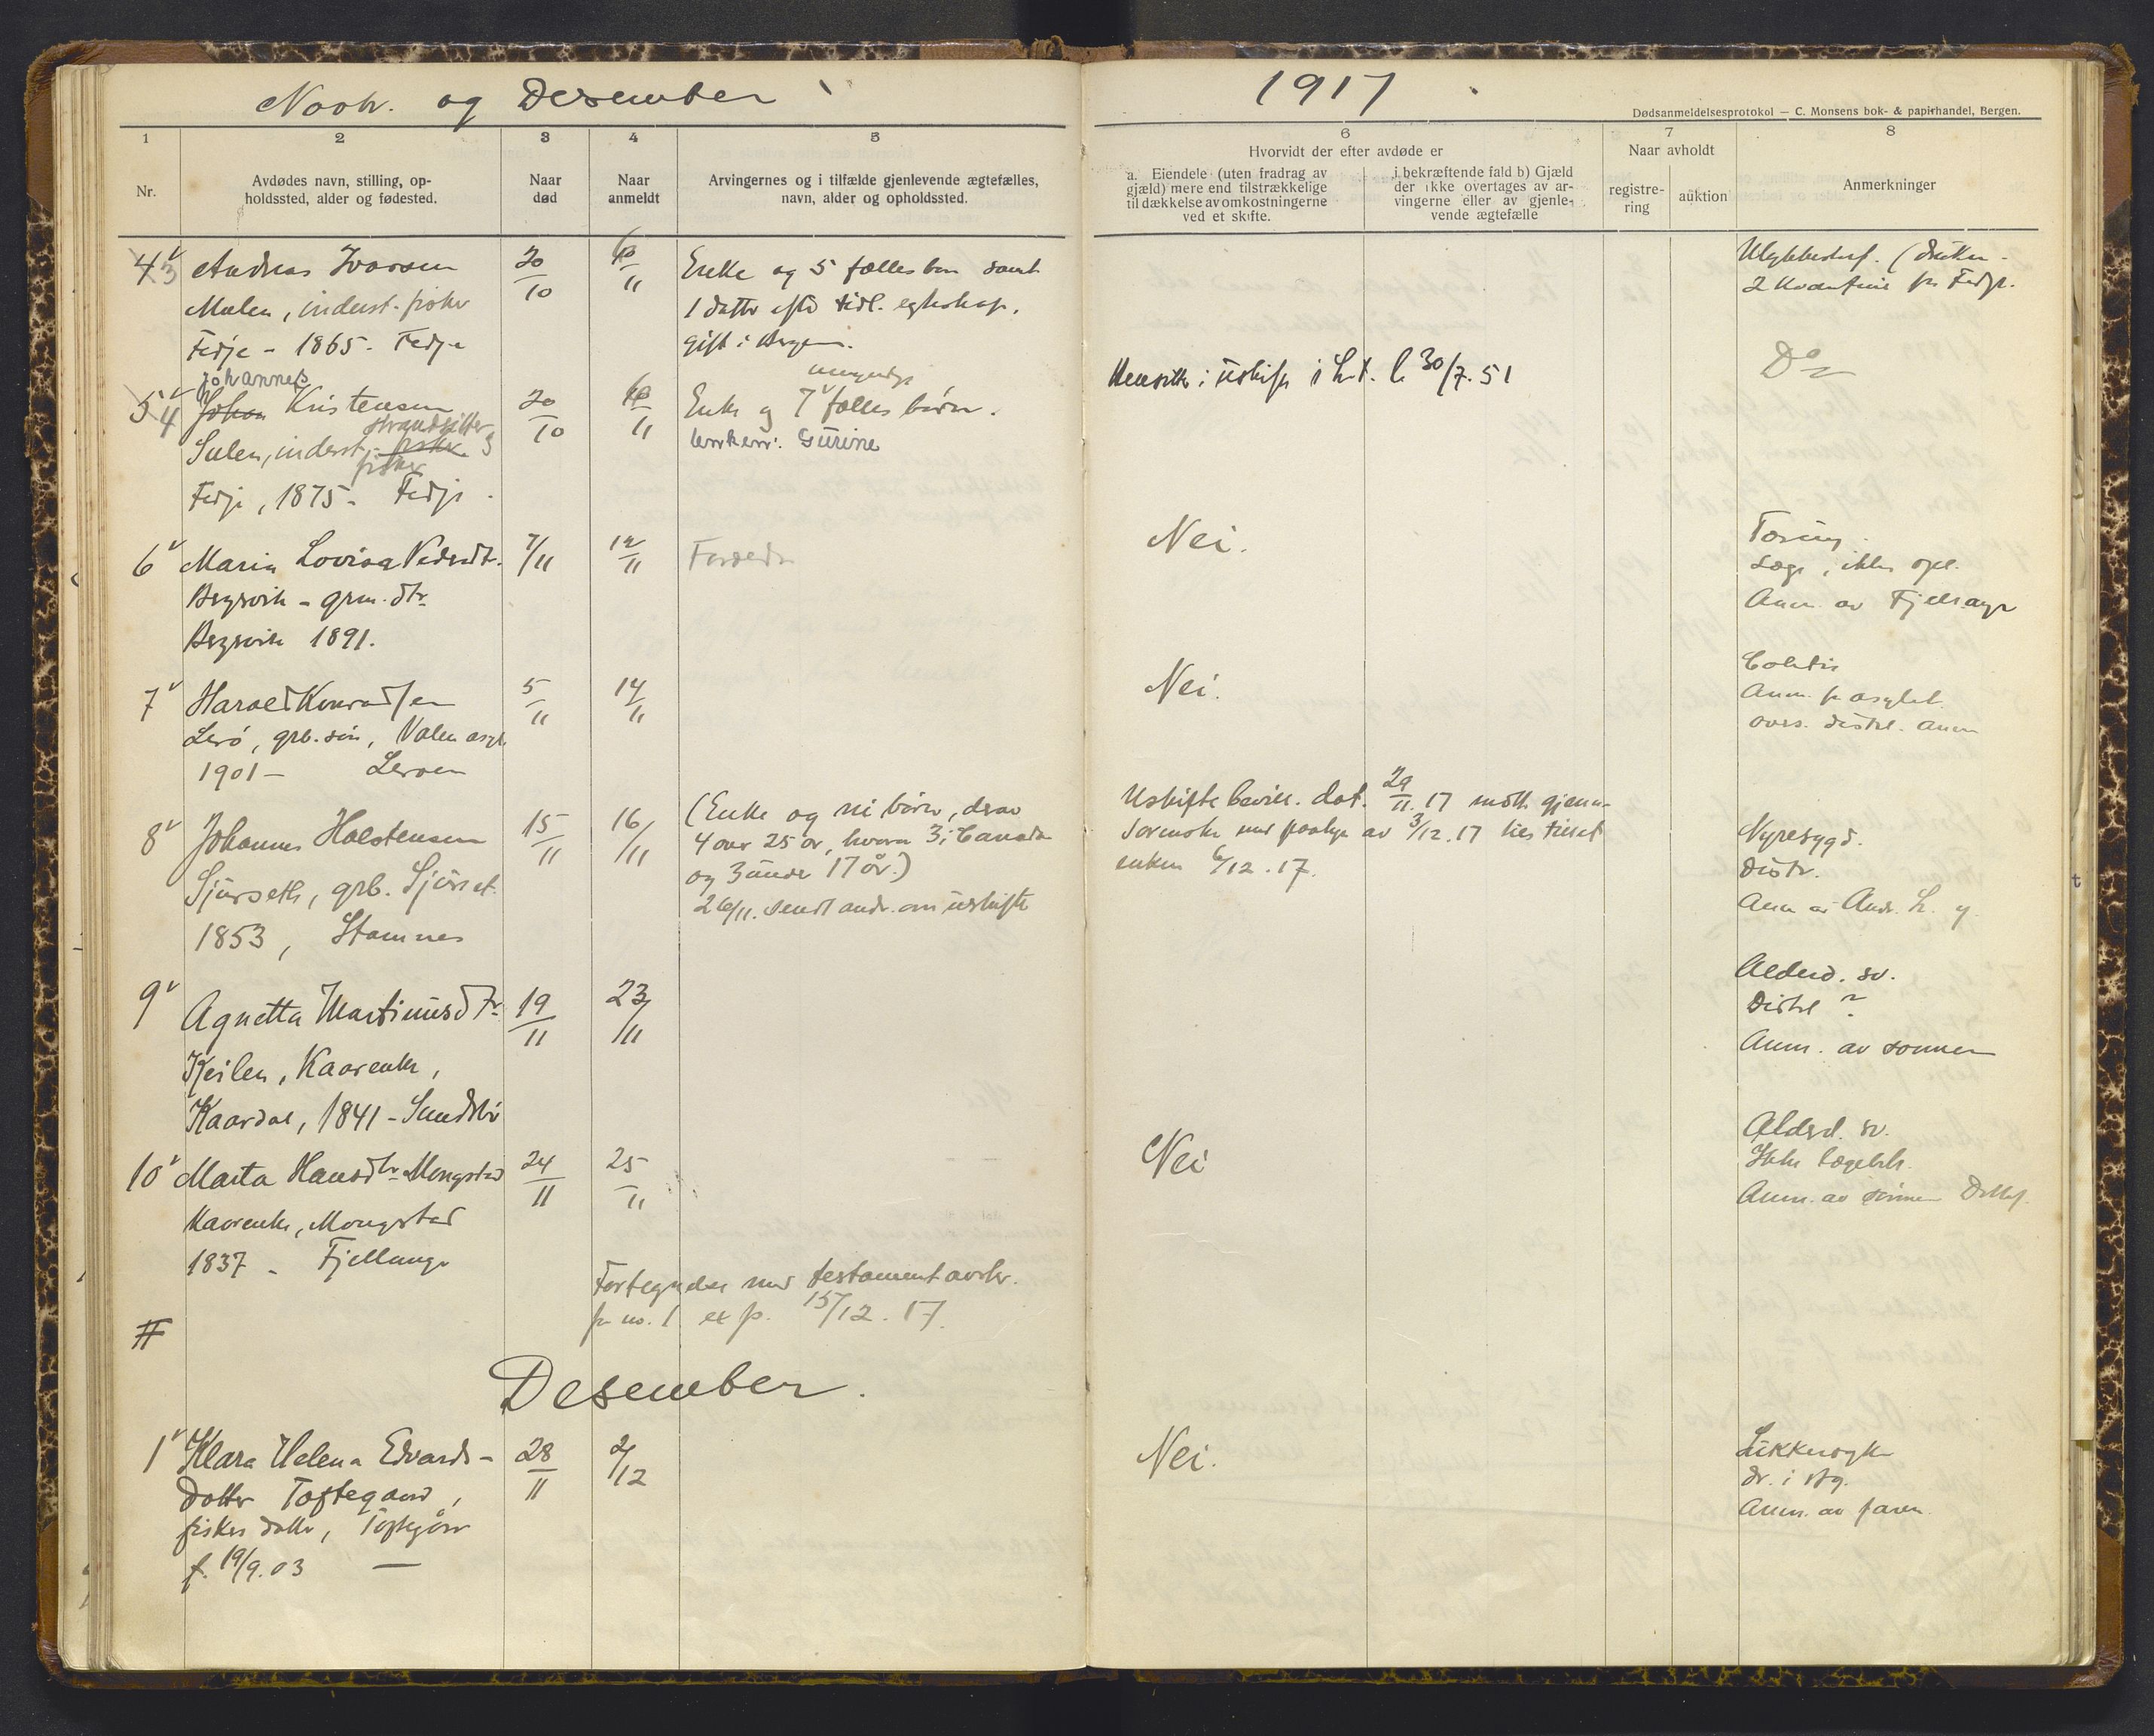 Novbr. og Desember
1917
Dødsanmeldelsesprotokol — C. Monsens bok- & papirhandel, Bergen.
1
2
3
4
5
6
7
8
Nr.
Avdødes navn, stilling, op-
holdssted, alder og fødested.
Naar
død
Naar
anmeldt
Arvingernes og i tilfælde gjenlevende ægtefælles,
navn, alder og opholdssted.
Hvorvidt der efter avdøde er
a. Eiendele (uten fradrag av
gjæld) mere end tilstrækkelige
til dækkelse av omkostningerne
ved et skifte.
i bekræftende fald b) Gjæld
der ikke overtages av ar-
vingerne eller av gjenle-
vende ægtefælle
Naar avholdt
registre-
ring
auktion
Anmerkninger
4 3 Andreas Ivarsen
Mulen, inderst. fisker
Fedje - 1865 - Fedje
20/10
11
Enke og 5 fælles barn samt
1 datter efter tidl. egteskap,
gift i Bergen.
Ulykkestilf. (
2 fra Fedje.
5 4 Johannes
Johan Kristensen
strandsitter
Sulen, inderst, fisker
fisker
Fedje, 1875 - Fedje
20/10
11
umyndige
Enke og 7 fælles børn.
Enken: Gurine
Hensitter i uskifte i h.t. 30/7.51
Do
6 Maria Lovisa
- grm. dtr.
1891.
7/11
12/11
Foreldr
Nei.
Læge, ikke opl.
Anm. av Fjellanger
7 Harald Konradsen
Lerø, grb. søn, Valen asyl.
1901 - Lerøen
5/11
14/11
Nei.
Anm. fr asylet
overs. distrl. anm
8 Johannes Holstensen
Sjurseth, grb. Sjurset
1853, Stamnes
15/11
16/11
(Enke og ni børn, derav
4 over 25 år, hvorav 3 i Canada
og 3 under 17 år.)
26/11. sendt andr. om uskifte
Uskifte bevill. dat. 29/11.17 mott. gjenn.
Sorensk. med paategn av 3/12.17 lies tilset
enken 6/12.17.
Nyresygd.
Distr.
Anm av Andr. H. 
9 Agnetta Martinusdtr.
Keilen, Kaarenke,
Kaardal, 1841 - Sundsbø
19/11
23/11
Alderd. sv.
Distrl ?
Anm. av sønnen
10 Marta Hansdtr. Mongstad
Kaarenke, Mongstad
1837 - Fjellanger
24/11
25/11
Nei
Alderd. sv.
Ikke lægebeh.
Anm. av sønnen
Fortegnelse med testamentavskr.
fr no. 1 exp. 15/12.17.
Desember.
1 Klara Helena Edvards-
datter Toftegaard,
fiskerdatter, Toftegård
f. 19/9.03 —
28/11
2/12
Nei.
Sukkersyke
dr. i Bg.
Anm. av faren